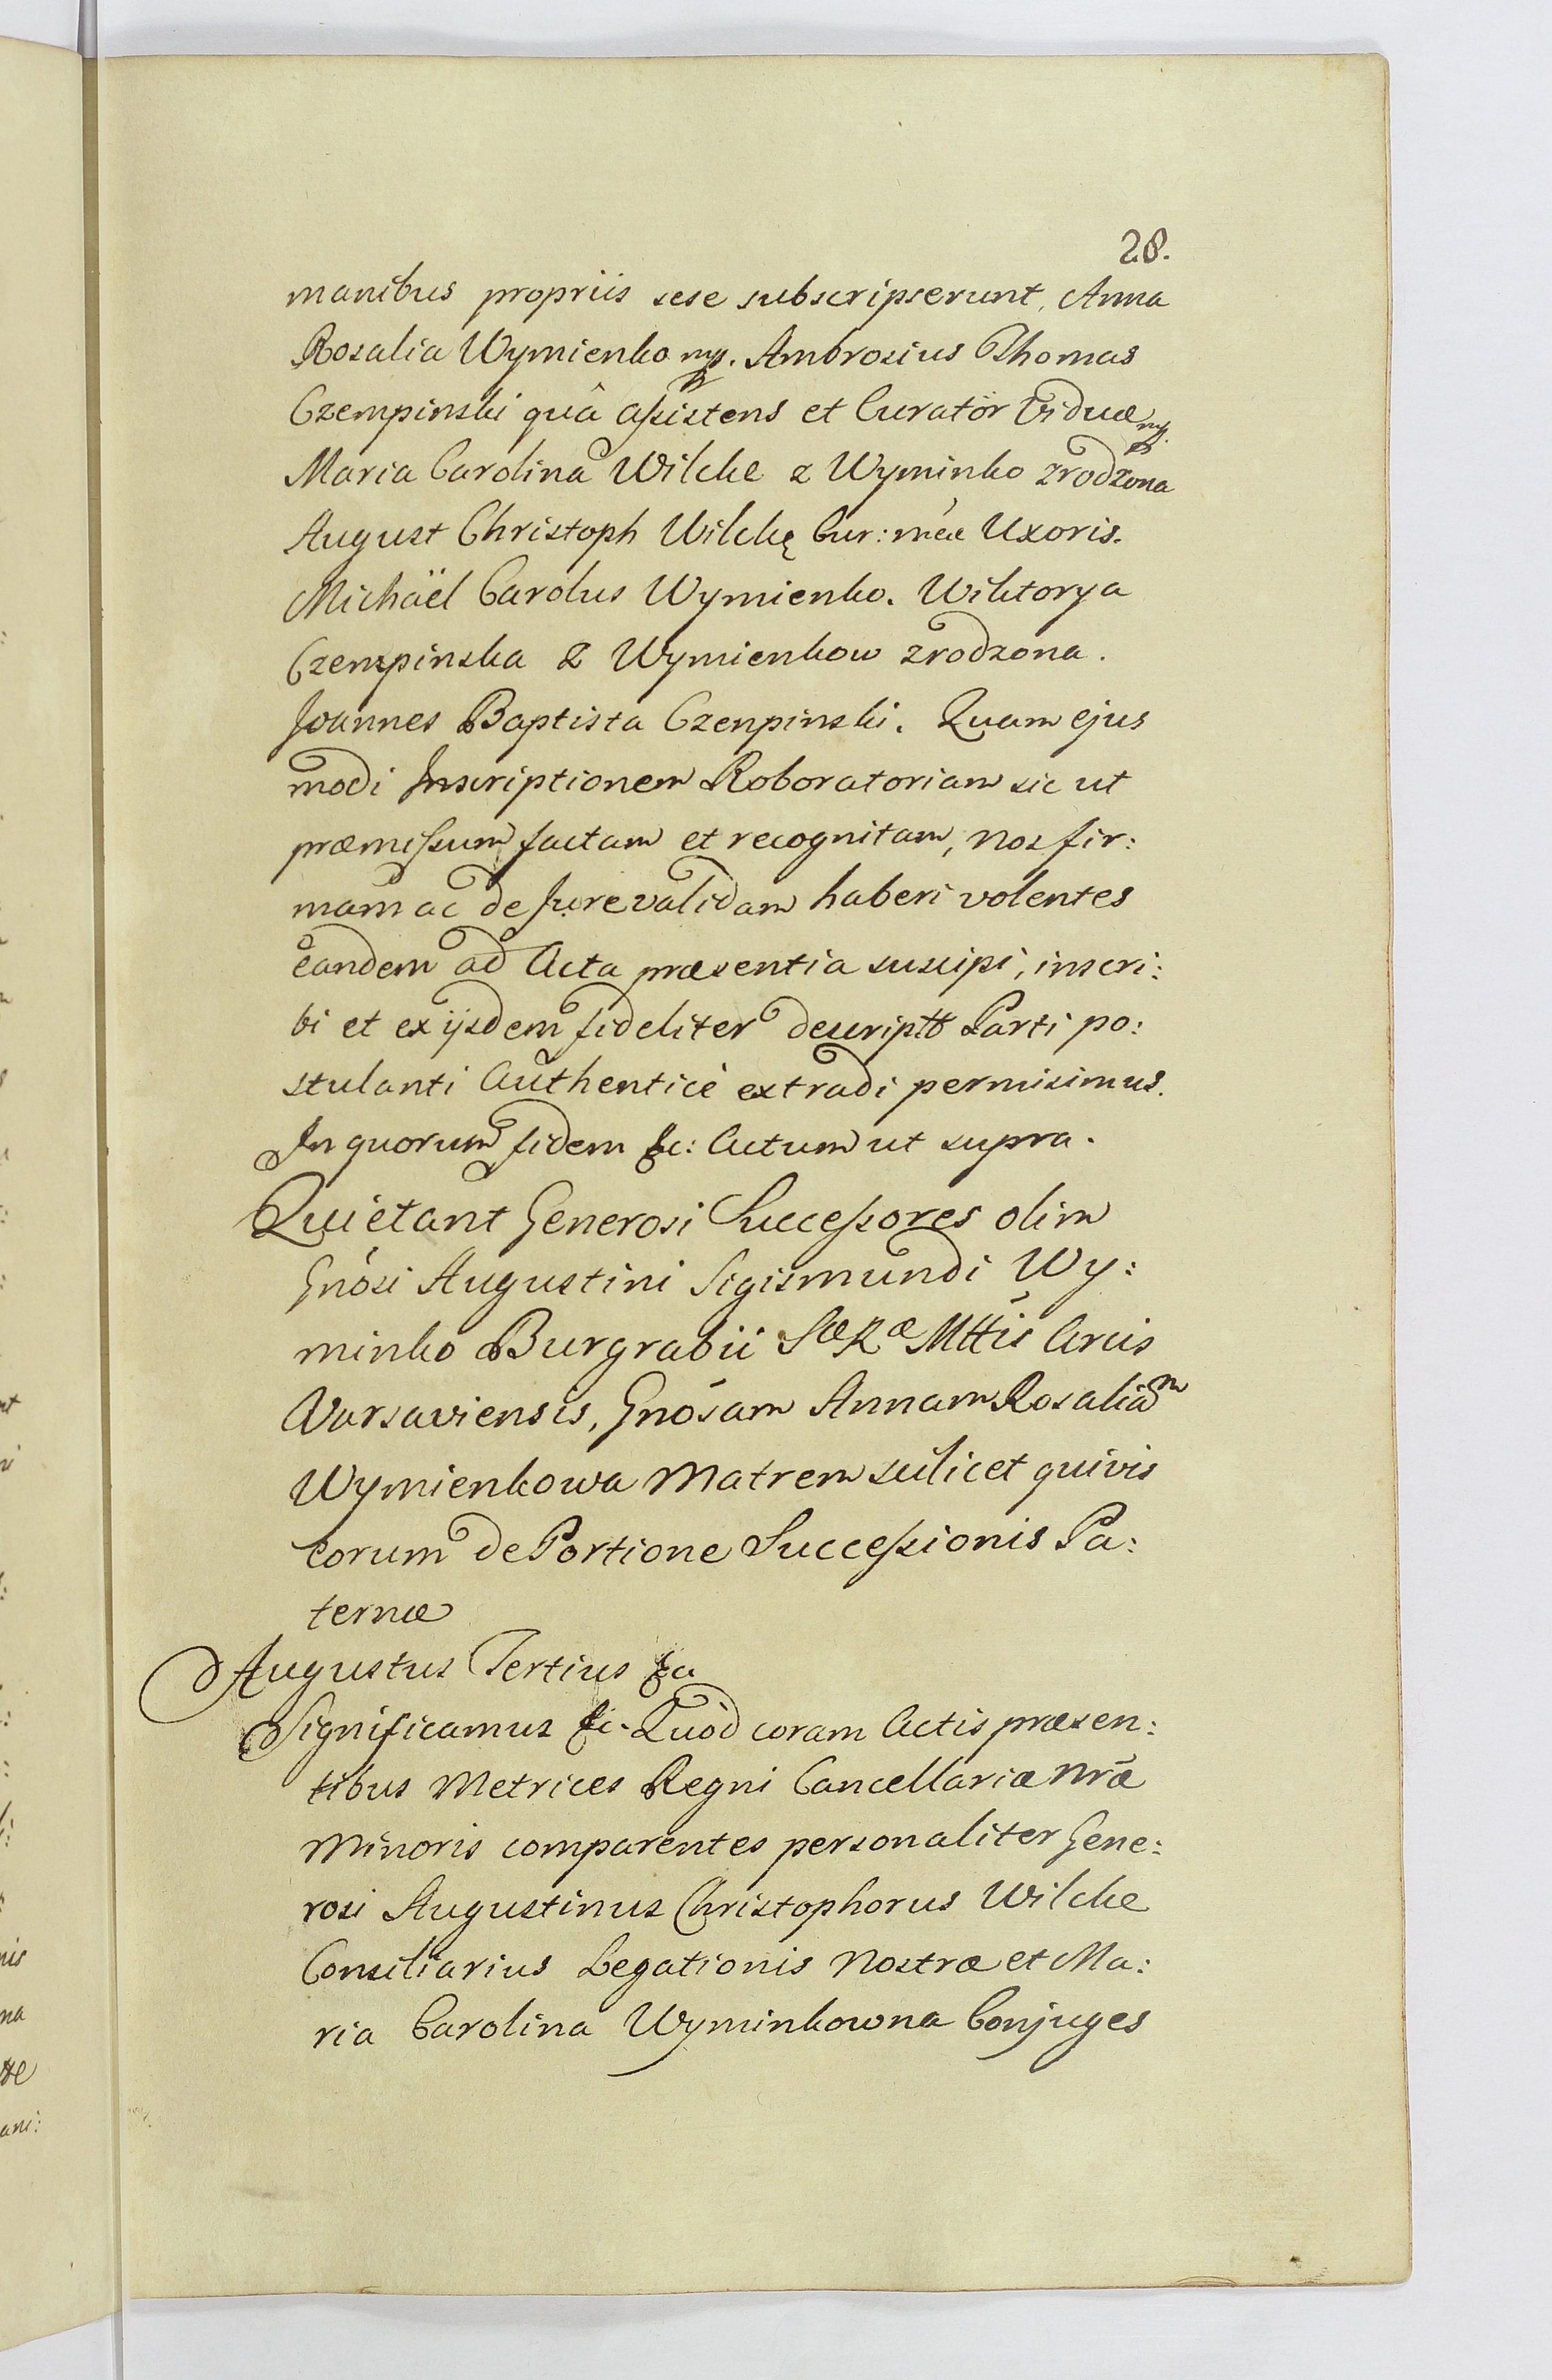 28.
manibus propriis sese subscripserunt, Anna
Rosalia Wymienko mp. Ambrosius Thomas
Czempinski quâ assistens et Curator Viduæ mp.
Maria Carolina Wilcke z Wyminko zrodzona
August Christoph Wilckę Cur: meæ Uxoris.
Michaël Carolus Wymienko. Wiktorya
Czempinska z Wymienkow zrodzona.
Joannes Baptista Czenpinski. Quam ejus
modi Inscriptionem Roboratoriam sic ut
præmissum factam et recognitam, nos fir:
mam ac de Jure validam haberi volentes
eandem ad Acta præsentia suscipi, inscri:
bi et ex ijsdem fideliter descriptt Parti po:
stulanti Authenticè extradi permisimus.
In quorum fidem &c: Actum ut supra.
Quietant Generosi Successores olim
Gnosi Augustini Sigismundi Wy:
minko Burgrabii Sæ Ræ Mttis Arcis
Varsaviensis, Gnosam Annam Rosaliam
Wymienkowa Matrem scilicet quivis
eorum de Portione Successionis Pa:
ternæ
Augustus Tertius &c
Significamus &c. Quòd coram Actis præsen:
tibus Metrices Regni Cancellariæ Nræ
Minoris comparentes personaliter Gene:
rosi Augustinus Christophorus Wilcke
Consiliarius Legationis Nostræ et Ma:
ria Carolina Wyminkowna Conjuges